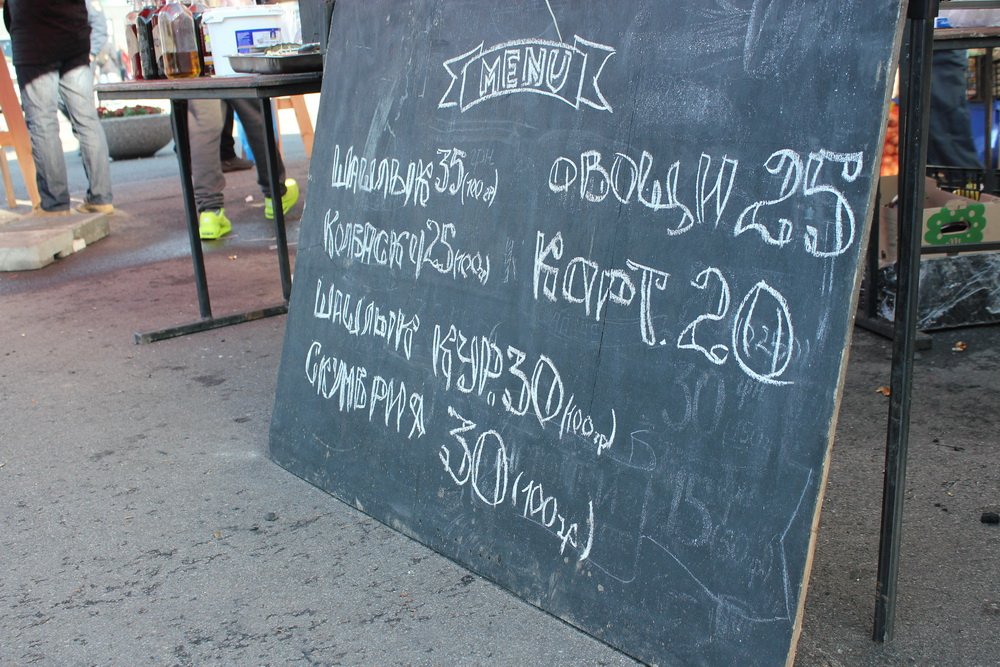 MENU
Шашлык 35 (100 гр)
Колбаски 25 (100г)
Шашлык кур. 30 (100гр)
Скумбрия 30 (100гр)
Овощи 25
Карт. 20